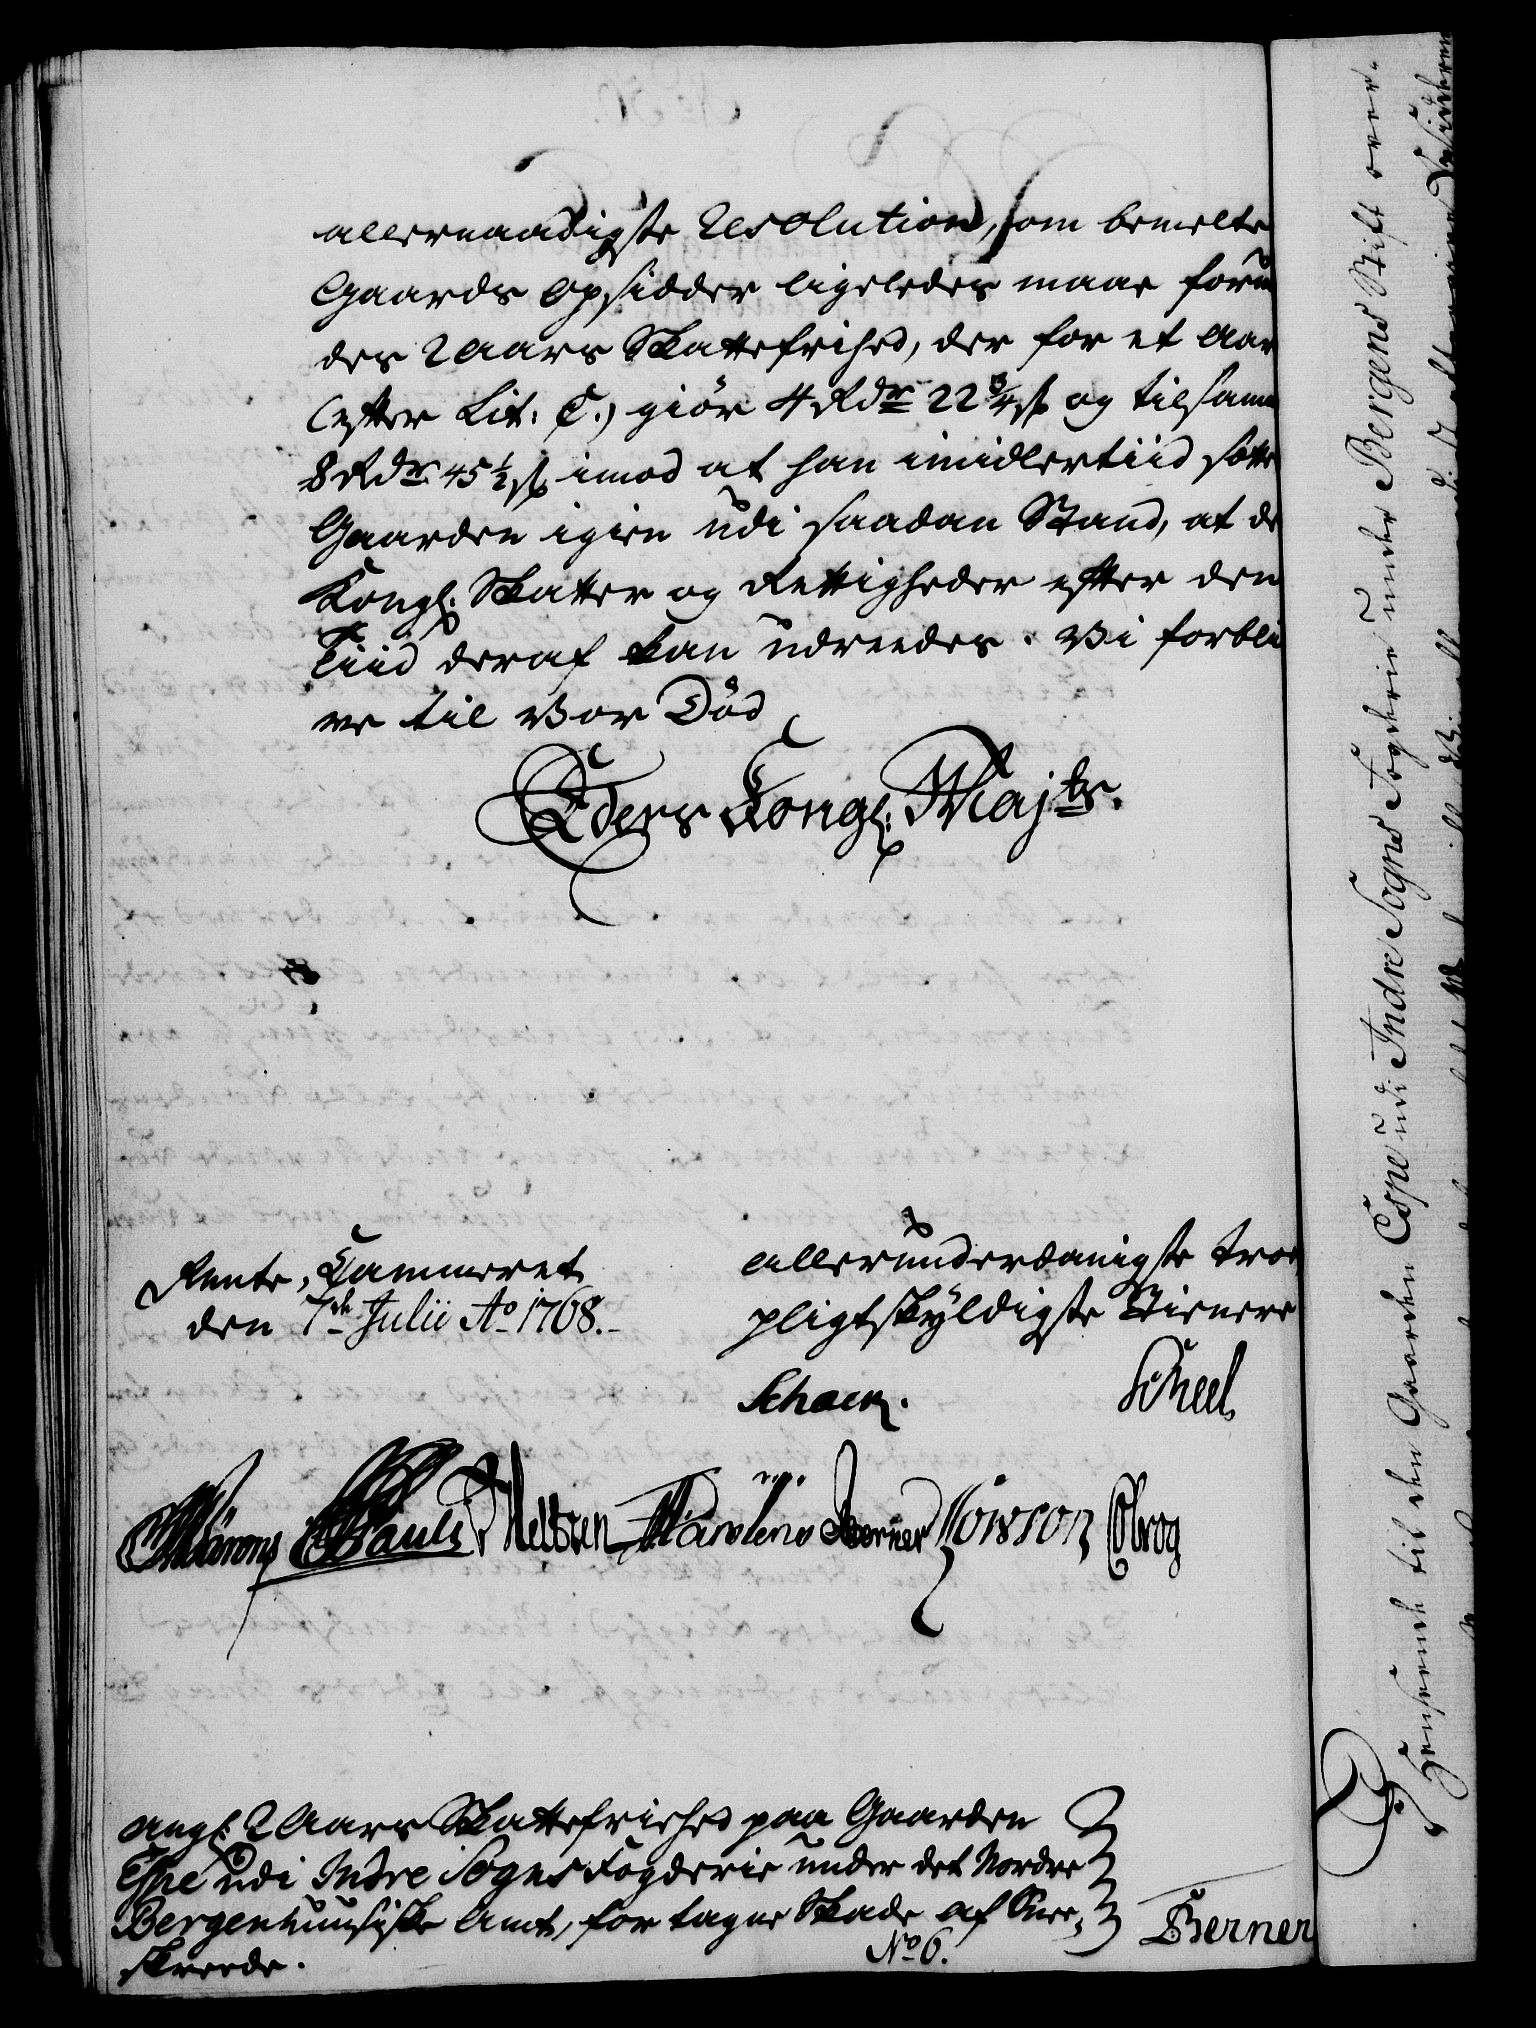 allernaadigste Resolution, som bemelte
Gaards Opsidder ligeledes maae forun
des 2 Aars Skattefrihed, der for et Aar
(efter Lit: C.) giör 4 Rdr 22 3/4 s og tilsam
8 Rdr 45 1/2 s, imod at han imidlertiid sætte
Gaarden igien udi saadan Stand, at de
Kongl: Skatter og Rettigheder efter den
Tiid deraf kan udreedes. Vi forbli
ve til Vor Död
Eders Kongl: Majts.
Rente-Cammeret
den 7de Julii Ao 1768.
allerunderdanigste troe
pligtskyldigste Tienere
Schack.
Scheel
Berner
ang: 2 Aars Skattefriehed paa Gaarden
Espe udi Indre Sogns Fogderie under det Nordre
Bergenhuusiske Amt, for tagne Skade af Snee-
skreede.
No 6.
Berner
I Henseende til den Gaarden Espe udi Indre Sogns Fogderie under Bergens Stift over-